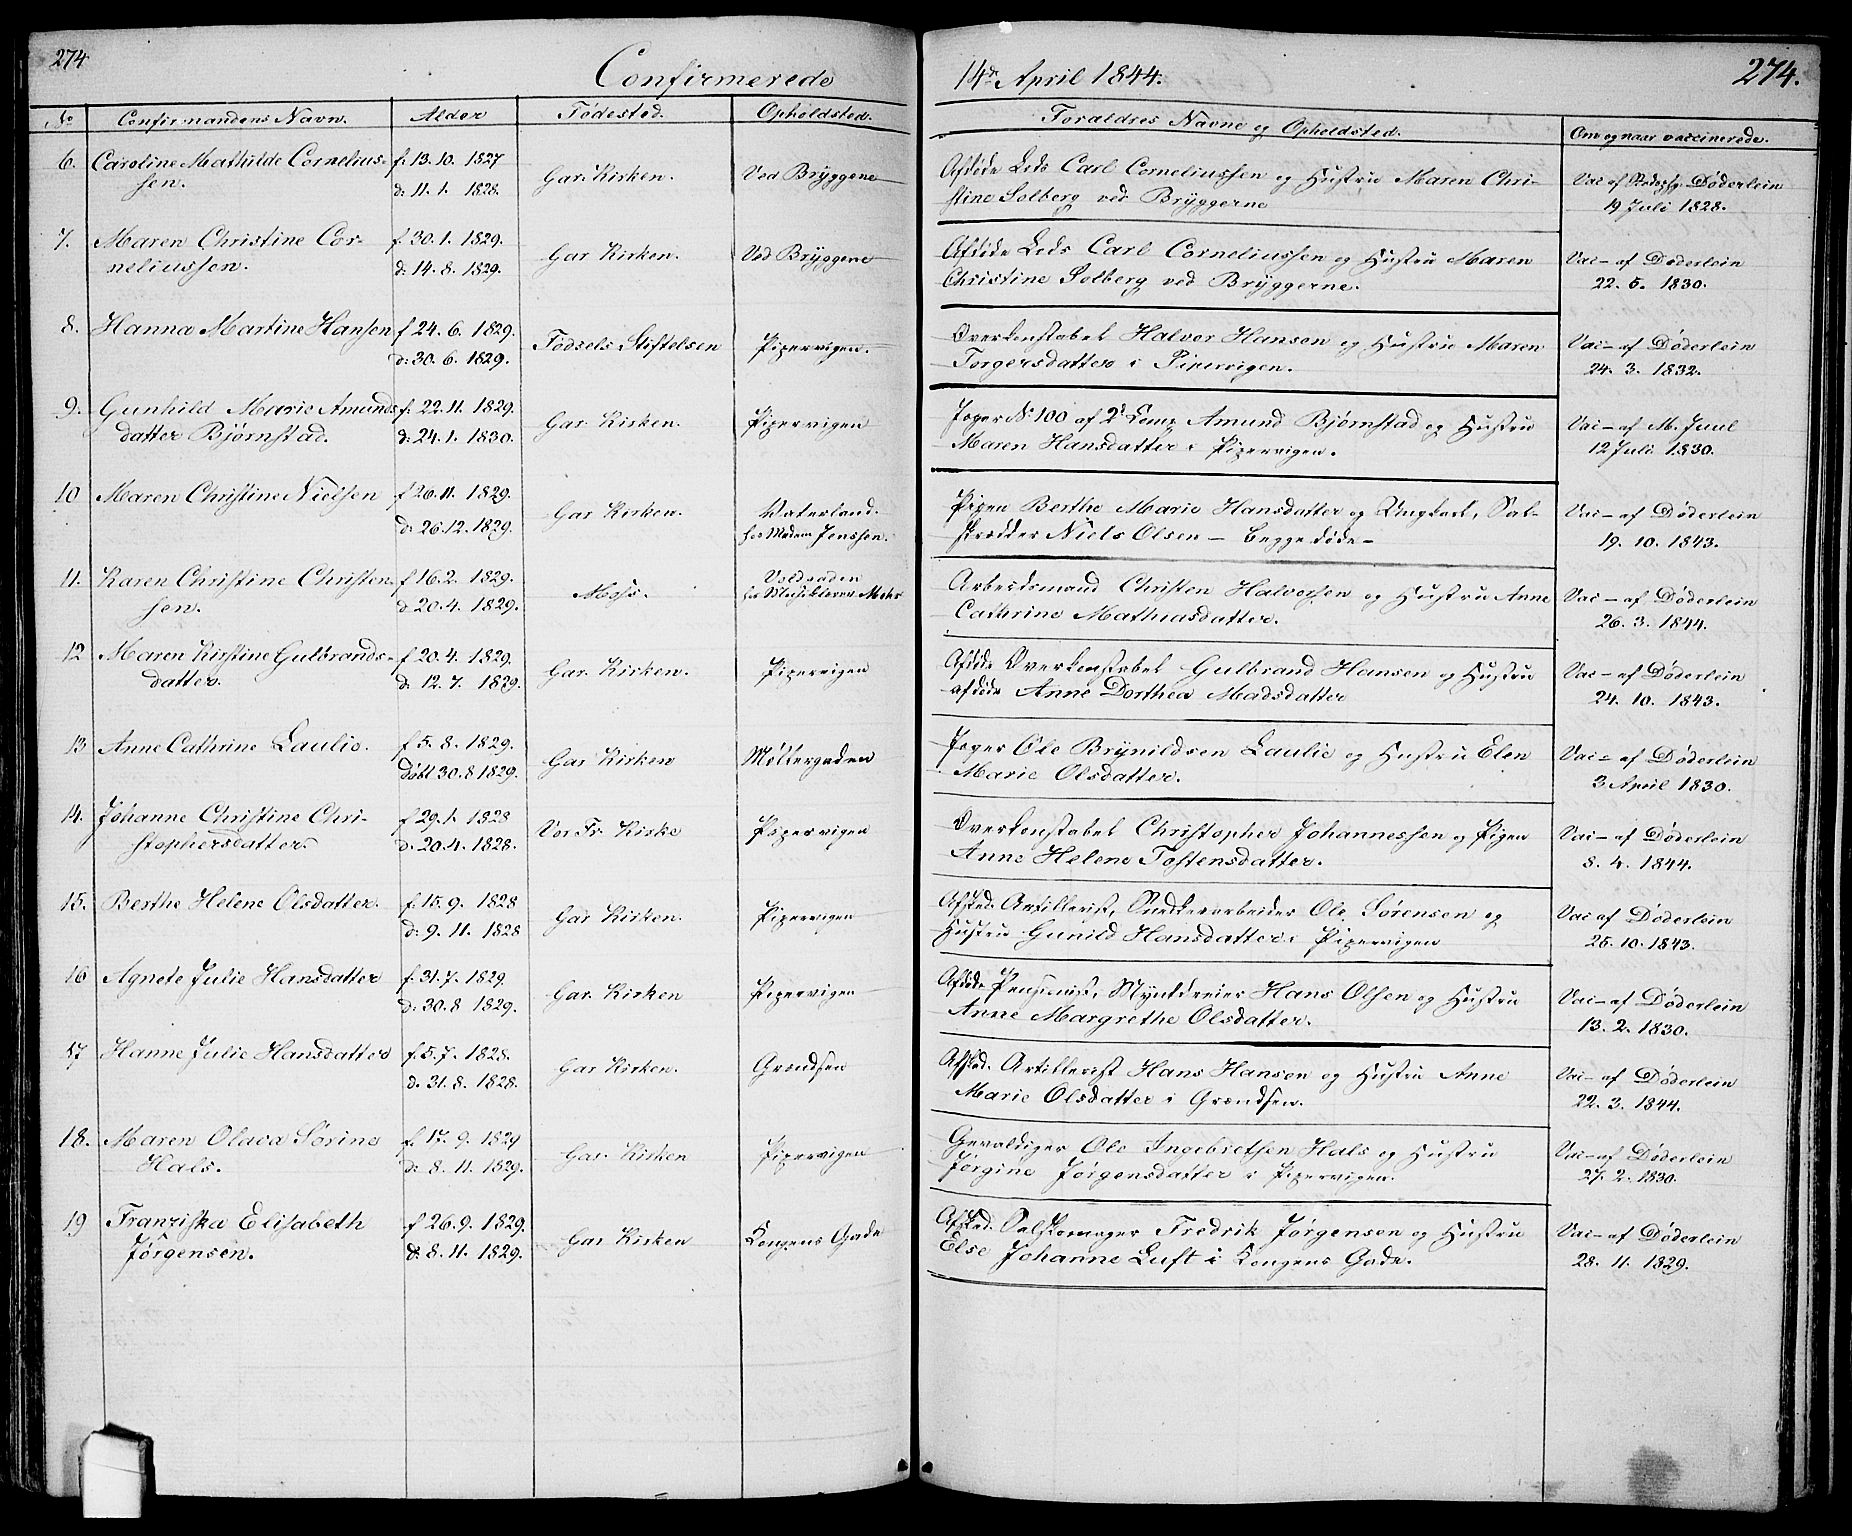 274
Confirmerede
14de April 1844.
274.
No Confirmandens Navn. Alder Fødested. Opholdsted. Forældres Navne og Opholdsted. Om og naar vaccinerede.
6. Caroline Mathilde Cornelius- f. 13. 10. 1827 Gar. Kirken. Ved Bryggene Afdøde Leds Carl Corneliussen og Hustru Maren Chri- Vac af Døderlein
sen. d: 11. 1. 1828. stine Solberg ved Bryggerne 19 Juli 1828.
7. Maren Christine Cor- f. 30. 1. 1829. Gar Kirken. Ved Bryggene Afdøde Leds Carl Corneliussen og Hustru Maren Vac- af Døderlein
neliussen. d: 14. 8. 1829. Christine Solberg ved Bryggerne. 22. 5. 1830.
8. Hanna Martine Hansen f 24. 6. 1829. Fødsels Stiftelsen Pipervigen. Overkonstabel Halvor Hansen og Hustru Maren Vac- af Døderlein
d: 30. 6. 1829. Torgersdatter i Pipervigen. 24. 3. 1832.
9. Gunhild Marie Amunds f. 22. 11. 1829. Gar. Kirken. Pipervigen Jæger No 100 af 2d Comp Amund Bjørnstad og Hustru Vac- af M. Juul
datter Bjørnstad. d: 24. 1. 1830. Maren Hansdatter i Pipervigen. 12 Juli 1830.
10 Maren Christine Nielsen f 26. 11. 1829. Gar Kirken. Vaterland. Pigen Berthe Marie Hansdatter og Ungkarl, Sal- Vac- af Døderlein
d: 26. 12. 1829. hos Madam Jenssen. skrædder Niels Olsen - begge døde - 19. 10. 1843.
11. Karen Christine Christen- f 16. 2. 1829. Moss. Voldgaden Arbeidsmand Christen Halvorsen og Hustru Anne Vac- af Døderlein
sen. d: 20. 4. 1829. hos Mohr Cathrine Mathiasdatter. 26. 3. 1844.
12 Maren Kirstine Gulbrands- f 20. 4. 1829. Gar. Kirken. Pipervigen Afdøde Overkonstabel Gulbrand Hansen og Hustru Vac- af Døderlein
datter. d: 12. 7. 1829. afdøde Anne Dorthea Madsdatter 24. 10. 1843.
13 Anne Cathrine Laulie. f 5. 8. 1829. Gar Kirken Møllergaden Jæger Ole Brynildsen Laulie og Hustru Elen Vac- af Døderlein
døbt 30. 8 1829. Marie Olsdatter. 3 April 1830.
14. Johanne Christine Chri- f 29. 1. 1828 Vor Fr. Kirke Pipervigen Overkonstabel Christopher Johannessen og Pigen Vac- af Døderlein
stophersdatter. d. 20. 4. 1828. Anne Helene Tostensdatter. 8. 4. 1844.
15. Berthe Helene Olsdatter. f. 15. 9. 1828 Gar Kirken. Pipervigen Afsked. Artillerist, Snedkerarbeider Ole Sørensen og Vac af Døderlein
d: 9. 11. 1828 Hustru Gunild Hansdatter i Pipervigen 25. 10. 1843.
16 Agnete Julie Hansdatter f. 31. 7. 1829. Gar. Kirken Pipervigen Afdøde Pensionist, Myntdreier Hans Olsen og Hustru Vac- af Døderlein
d: 30. 8 1829. Anne Margrethe Olsdatter. 13. 2. 1830.
17 Hanne Julie Hansdatter f. 5. 7. 1828. Gar Kirken. Grændsen Afsked. Artillerist Hans Hansen og Hustru Anne Vac- af Døderlein
d. 31. 8. 1828. Marie Olsdatter i Grændsen. 22. 3. 1844.
18. Maren Olava Sørine f. 17. 9. 1829 Gar. Kirken Pipervigen Gevaldiger Ole Ingebretsen Hals og Hustru Vac- af Døderlein
Hals. d: 8. 11. 1829. Jørgine Jørgensdatter i Pipervigen. 27. 2. 1830.
19 Franziska Elisabeth f 26. 9. 1829. Gar Kirken Kongens Gade Afsked. Fredrik Jørgensen og Hustru Vac- af Døderlein
Jørgensen. d: 8. 11. 1829. Else Johanne Luft i Kongens Gade. 28. 11. 1829.